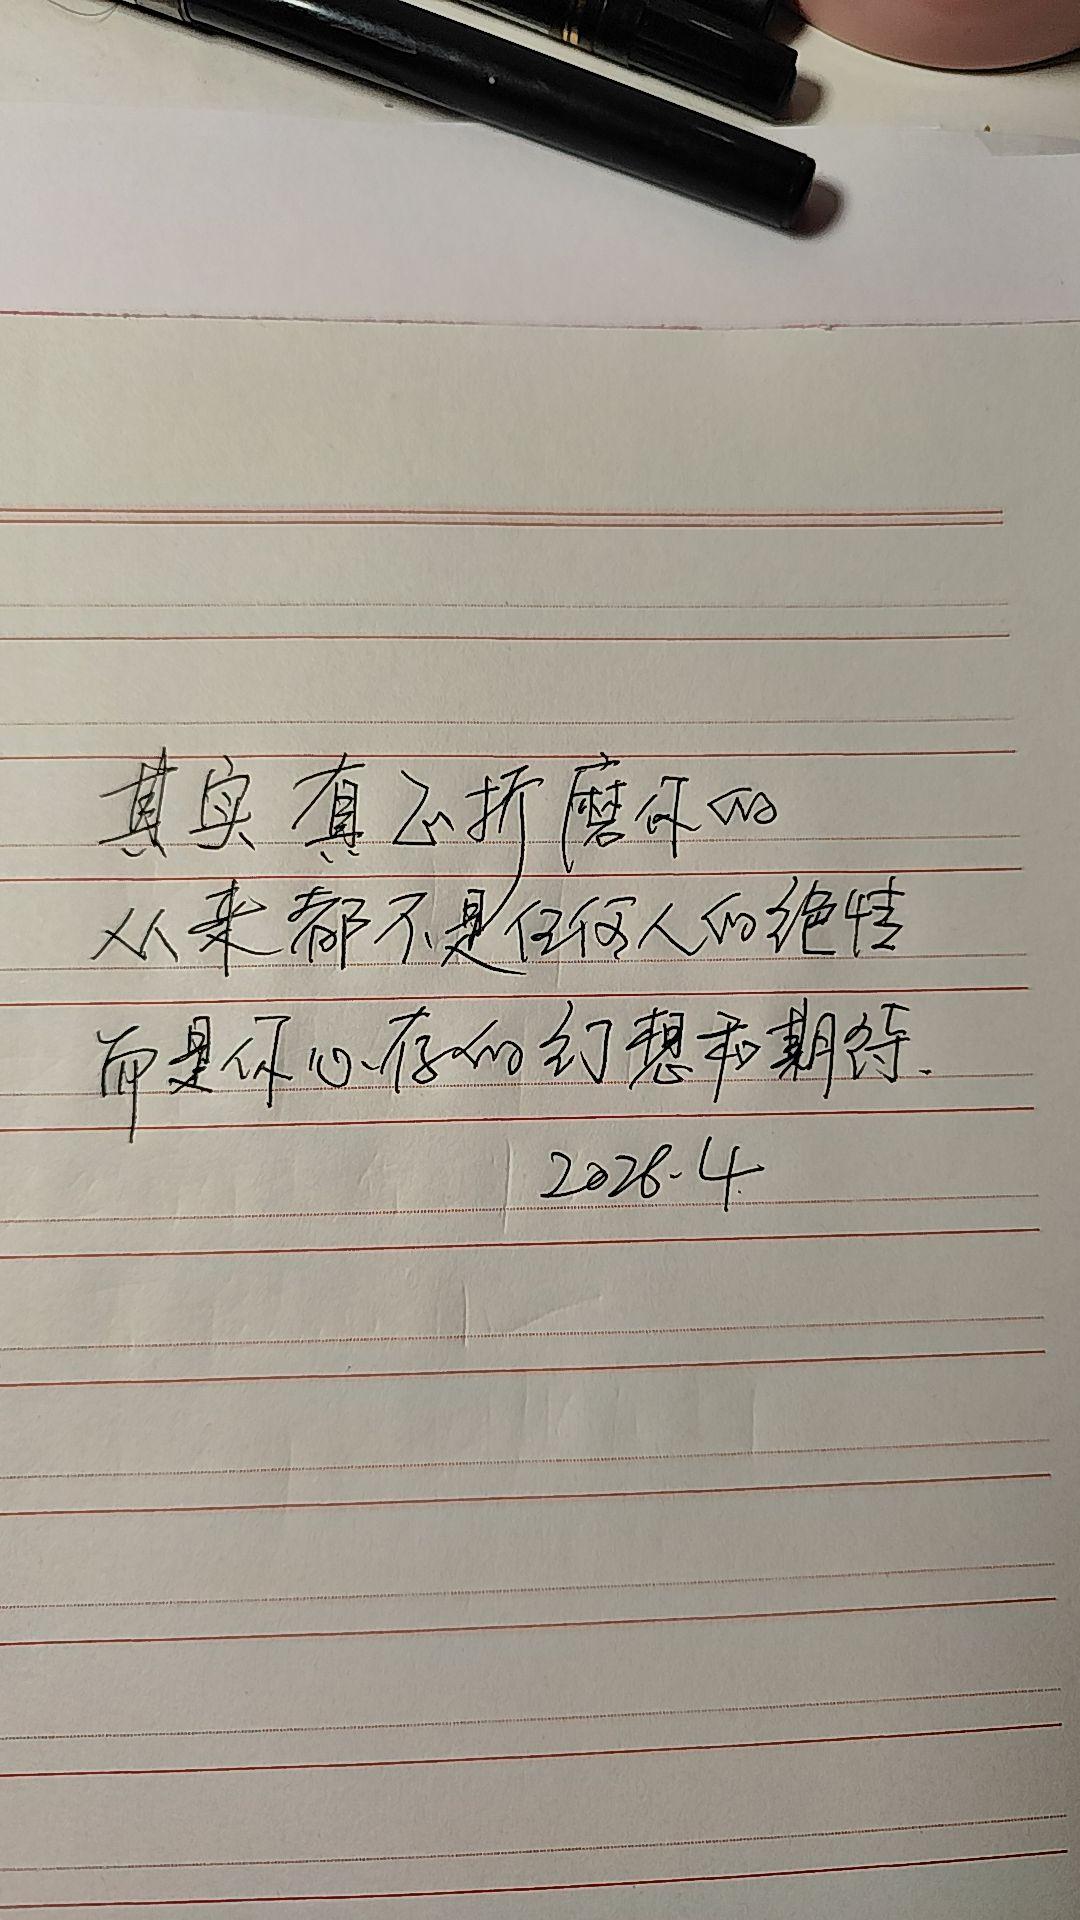 其实真正折磨你的
从来都不是任何人的绝情
而是你心存的幻想和期待.
2026.4.